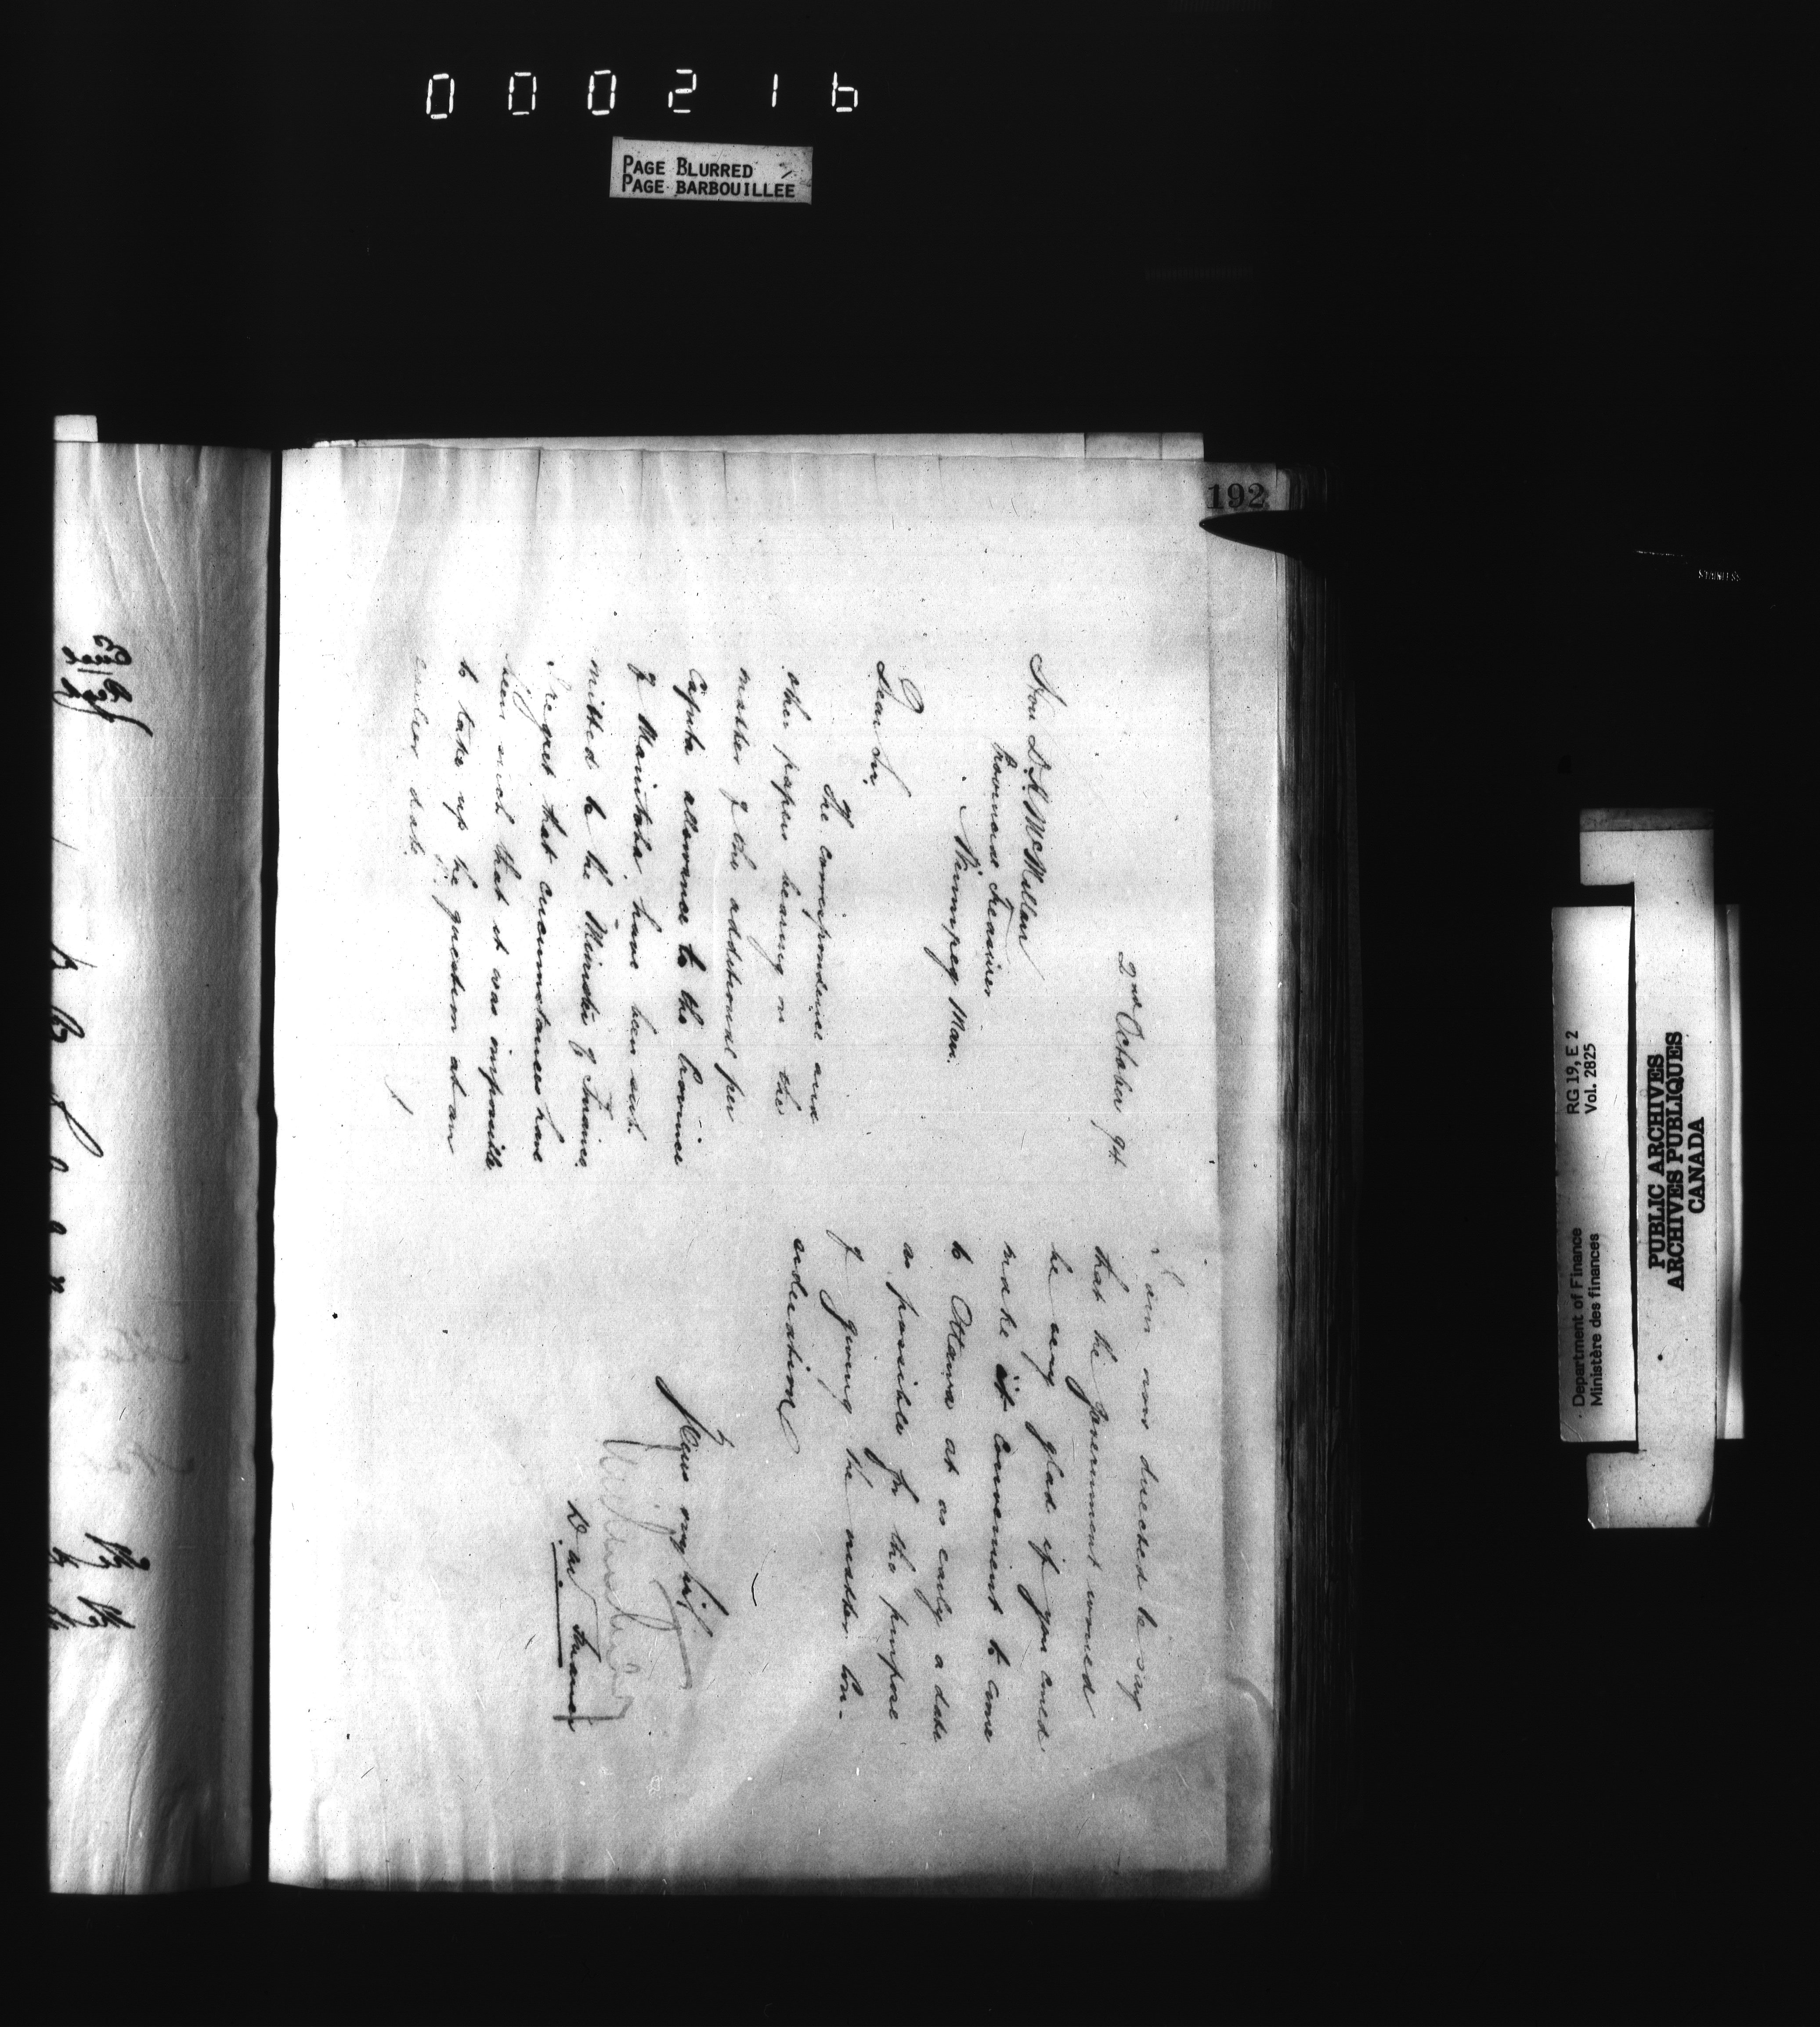 000216
PAGE BLURRED
PAGE BARBOUILLEE
192
2nd October 94
Hon D. H. McMillan
Provincial Treasurer
Winnipeg Man.
Dear Sir,
The correspondence and
other papers bearing on the
matter of the additional per
Capita allowance to the Province
of Manitoba have been sub-
mitted to the Minister of Finance.
I regret that circumstances have
been such that it was impossible
to take up the question at an
earlier date.
I am now directed to say
that the Government would
be very glad if you could
make it convenient to come
to Ottawa at as early a date
as possible for the purpose
of giving the matter con-
sideration
Yours very
Finance
RG 19, E 2
Vol. 2825
Department of Finance
Ministère des finances
PUBLIC ARCHIVES
ARCHIVES PUBLIQUES
CANADA
STAINLESS